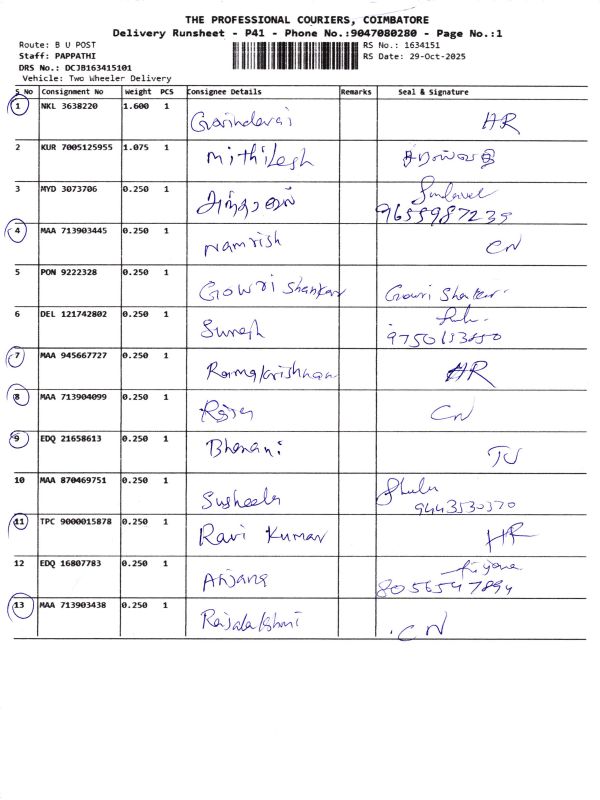 THE PROFESSIONAL COURIERS, COIMBATORE
Delivery Runsheet - P41 - Phone No.:9047080280 - Page No.:1
Route: B U POST RS No.: 1634151
Staff: PAPPATHI RS Date: 29-Oct-2025
DRS No.: DCJB163415101
Vehicle: Two Wheeler Delivery
S No Consignment No Weight PCS Consignee Details Remarks Seal & Signature
1 NKL 3638220 1.600 1 Govindaraj HR
2 KUR 7005125955 1.075 1 Mithilesh
3 MYD 3073706 0.250 1
9655987235
4 MAA 713903445 0.250 1 Namrish CN
5 PON 9222328 0.250 1 Gowri Shankar Gowri Shankar
6 DEL 121742802 0.250 1 Suresh
7 MAA 945667727 0.250 1 Ramakrishnan HR
8 MAA 713904099 0.250 1 CN
9 EDQ 21658613 0.250 1 Bhavani
10 MAA 870469751 0.250 1 Susheela
9443530370
11 TPC 9000015878 0.250 1 Ravi Kumar HR
12 EDQ 16807783 0.250 1
8056547894
13 MAA 713903438 0.250 1 Rajalakshmi CN